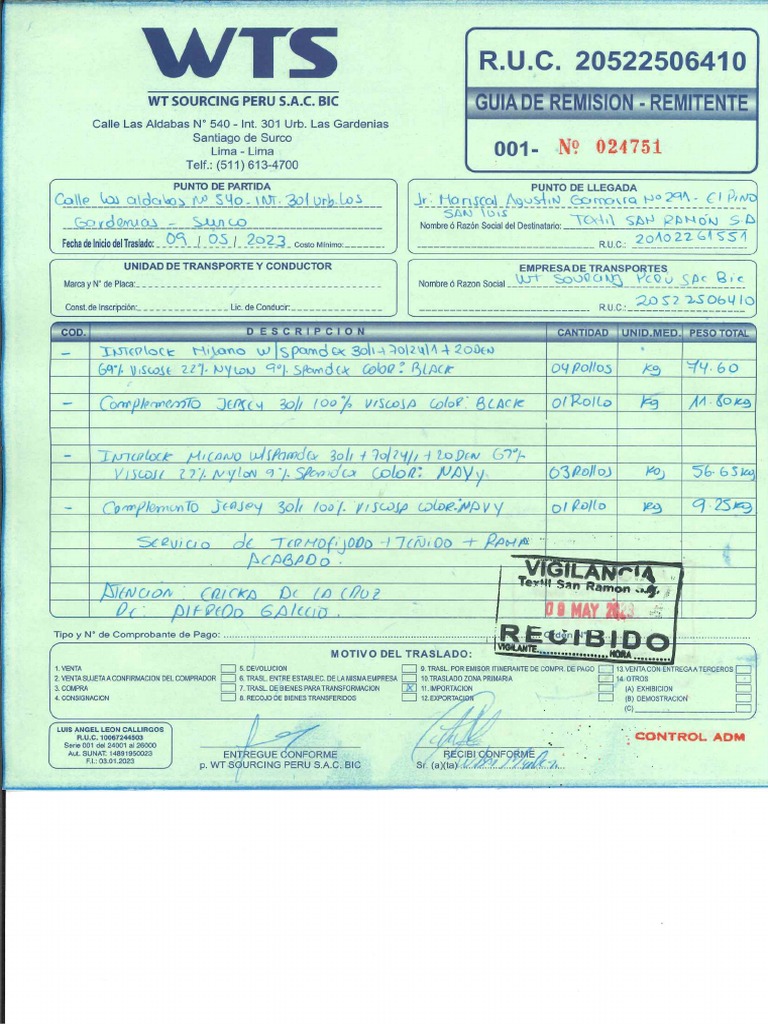 WTS
WT SOURCING PERU S.A.C. BIC
Calle Las Aldabas N° 540 - Int. 301 Urb. Las Gardenias
Santiago de Surco
Lima - Lima
Telf.: (511) 613-4700
R.U.C. 20522506410
GUIA DE REMISION - REMITENTE
001- Nº 024751
PUNTO DE PARTIDA
Calle los aldabas Nº 540 - INT. 301 urb. Los
Gardenias - Surco
Fecha de Inicio del Traslado: 09/05/2023 Costo Mínimo:
PUNTO DE LLEGADA
Jr. Mariscal Agustin Gamarra Nº 291 - El Pino
SAN LUIS
Nombre ó Razón Social del Destinatario: Textil SAN RAMÓN S.A
R.U.C.: 20102261551
UNIDAD DE TRANSPORTE Y CONDUCTOR
Marca y N° de Placa:
Const. de Inscripción: Lic. de Conducir:
EMPRESA DE TRANSPORTES
Nombre ó Razon Social WT SOURCING PERU SAC Bic
R.U.C.: 20522506410
COD. DESCRIPCION CANTIDAD UNID.MED. PESO TOTAL
- INTERLOCK Milano W/Spandex 30/1+70/24/1+20DEN
69% VISCOSE 22% NYLON 9% Spandex COLOR: BLACK 04 Rollos kg 74.60
- Complemento JERSEY 30/1 100% VISCOSA COLOR: BLACK 01 Rollo kg 11.80 kg
- INTERLOCK MILANO W/Spandex 30/1+70/24/1+20DEN 69%
VISCOSE 22% NYLON 9% Spandex COLOR: NAVY 03 Rollos kg 56.65 kg
- Complemento JERSEY 30/1 100% VISCOSA COLOR: NAVY 01 Rollo kg 9.25 kg
SERVICIO de TERMOFIJADO + TEÑIDO + RAMA
ACABADO.
ATENCION: ERICKA DE LA CRUZ
DE: ALFREDO
VIGILANCIA
Textil San Ramon S.A.
09 MAY 2023
RECIBIDO
VIGILANTE HORA
Tipo y N° de Comprobante de Pago: Orden N°
MOTIVO DEL TRASLADO:
1. VENTA 5. DEVOLUCION 9. TRASL. POR EMISOR ITINERANTE DE COMPR. DE PAGO 13. VENTA CON ENTREGA A TERCEROS
2. VENTA SUJETA A CONFIRMACION DEL COMPRADOR 6. TRASL. ENTRE ESTABLEC. DE LA MISMA EMPRESA 10. TRASLADO ZONA PRIMARIA 14. OTROS
3. COMPRA 7. TRASL. DE BIENES PARA TRANSFORMACION X 11. IMPORTACION (A) EXHIBICION
4. CONSIGNACION 8. RECOJO DE BIENES TRANSFERIDOS 12. EXPORTACION (B) DEMOSTRACION
(C)
LUIS ANGEL LEON CALLIRGOS
R.U.C. 10067244503
Serie 001 del 24001 al 26000
Aut. SUNAT: 14891950023
F.I.: 03.01.2023
ENTREGUE CONFORME
p. WT SOURCING PERU S.A.C. BIC
RECIBI CONFORME
Sr. (a)(ta)
CONTROL ADM